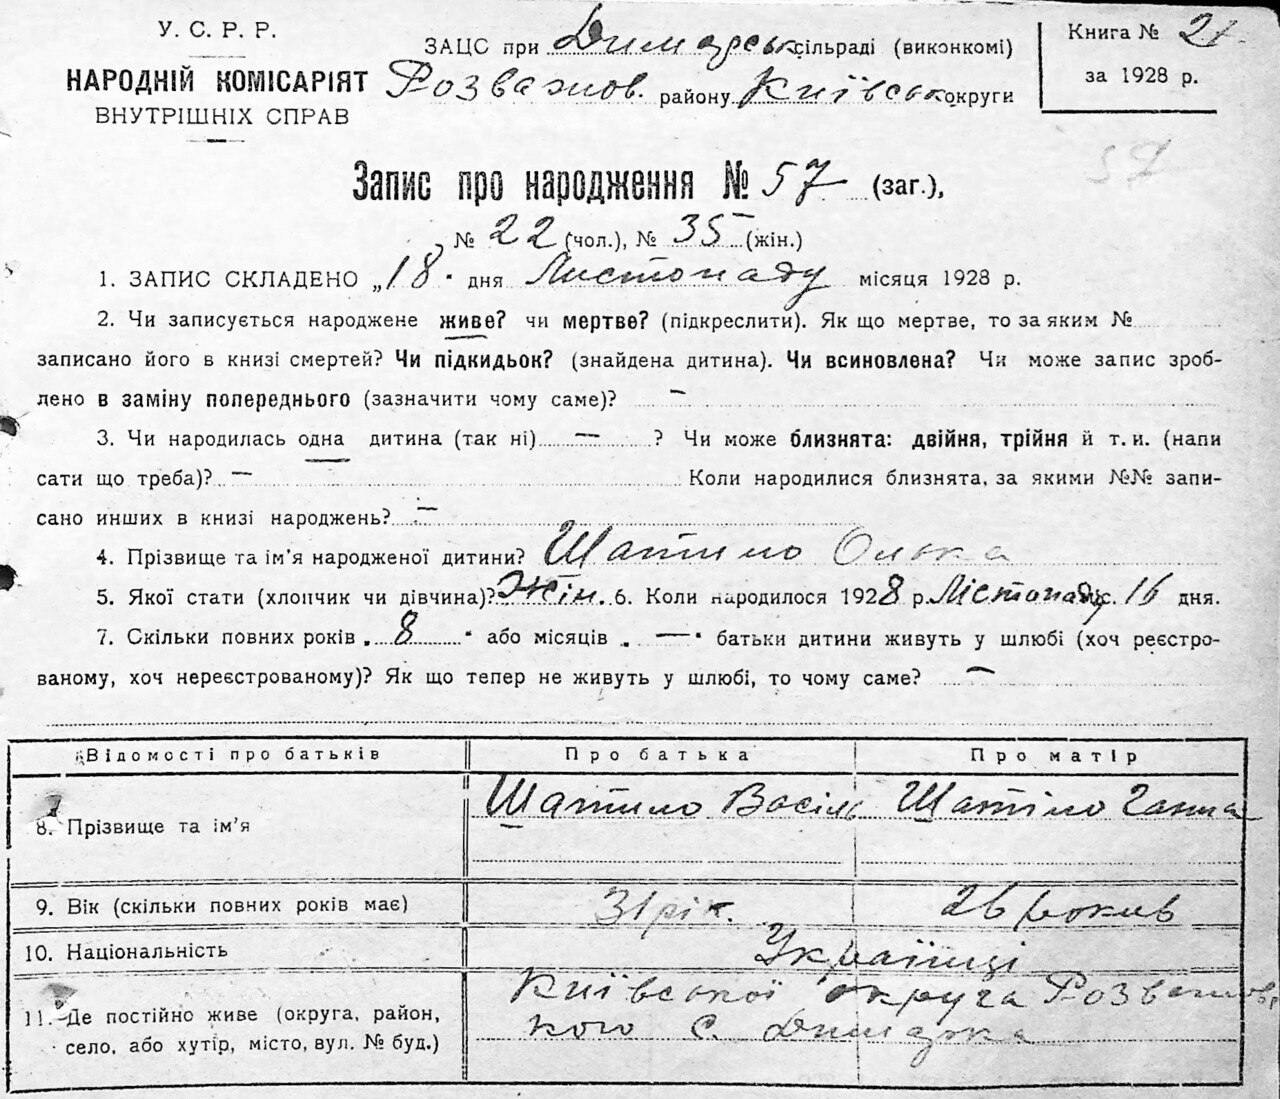 У. С. Р. Р.
НАРОДНІЙ КОМІСАРІЯТ
ВНУТРІШНІХ СПРАВ
ЗАЦС при Димарськ сільраді (виконкомі)
Розважов. району Київськ округи
Книга № 21
за 1928 р.
57
Запис про народження № 57 (заг.),
№ 22 (чол.), № 35 (жін.)
1. ЗАПИС СКЛАДЕНО „18" дня Листопаду місяця 1928 р.
2. Чи записується народжене живе? чи мертве? (підкреслити). Як що мертве, то за яким №
записано його в книзі смертей? Чи підкидьок? (знайдена дитина). Чи всиновлена? Чи може запис зроб-
лено в заміну попереднього (зазначити чому саме)? —
3. Чи народилась одна дитина (так ні) — ? Чи може близнята: двійня, трійня й т. и. (напи
сати що треба)? — Коли народилися близнята, за якими №№ запи-
сано инших в книзі народжень? —
4. Прізвище та ім'я народженої дитини? Шатило Олька
5. Якої стати (хлопчик чи дівчина)? Жін. 6. Коли народилося 1928 р. Лістопаду 16 дня.
7. Скільки повних років „8" або місяців „—" батьки дитини живуть у шлюбі (хоч реєстро-
ваному, хоч нереєстрованому)? Як що тепер не живуть у шлюбі, то чому саме? —
Відомості про батьків Про батька Про матір
8. Прізвище та ім'я Шатило Васіль Шатіло Ганна
9. Вік (скільки повних років має) 31 рік. 26 роков
10. Національність Українці
11. Де постійно живе (округа, район,
село, або хутір, місто, вул. № буд.)
Київської округа Розважовс
кого с. Димарка